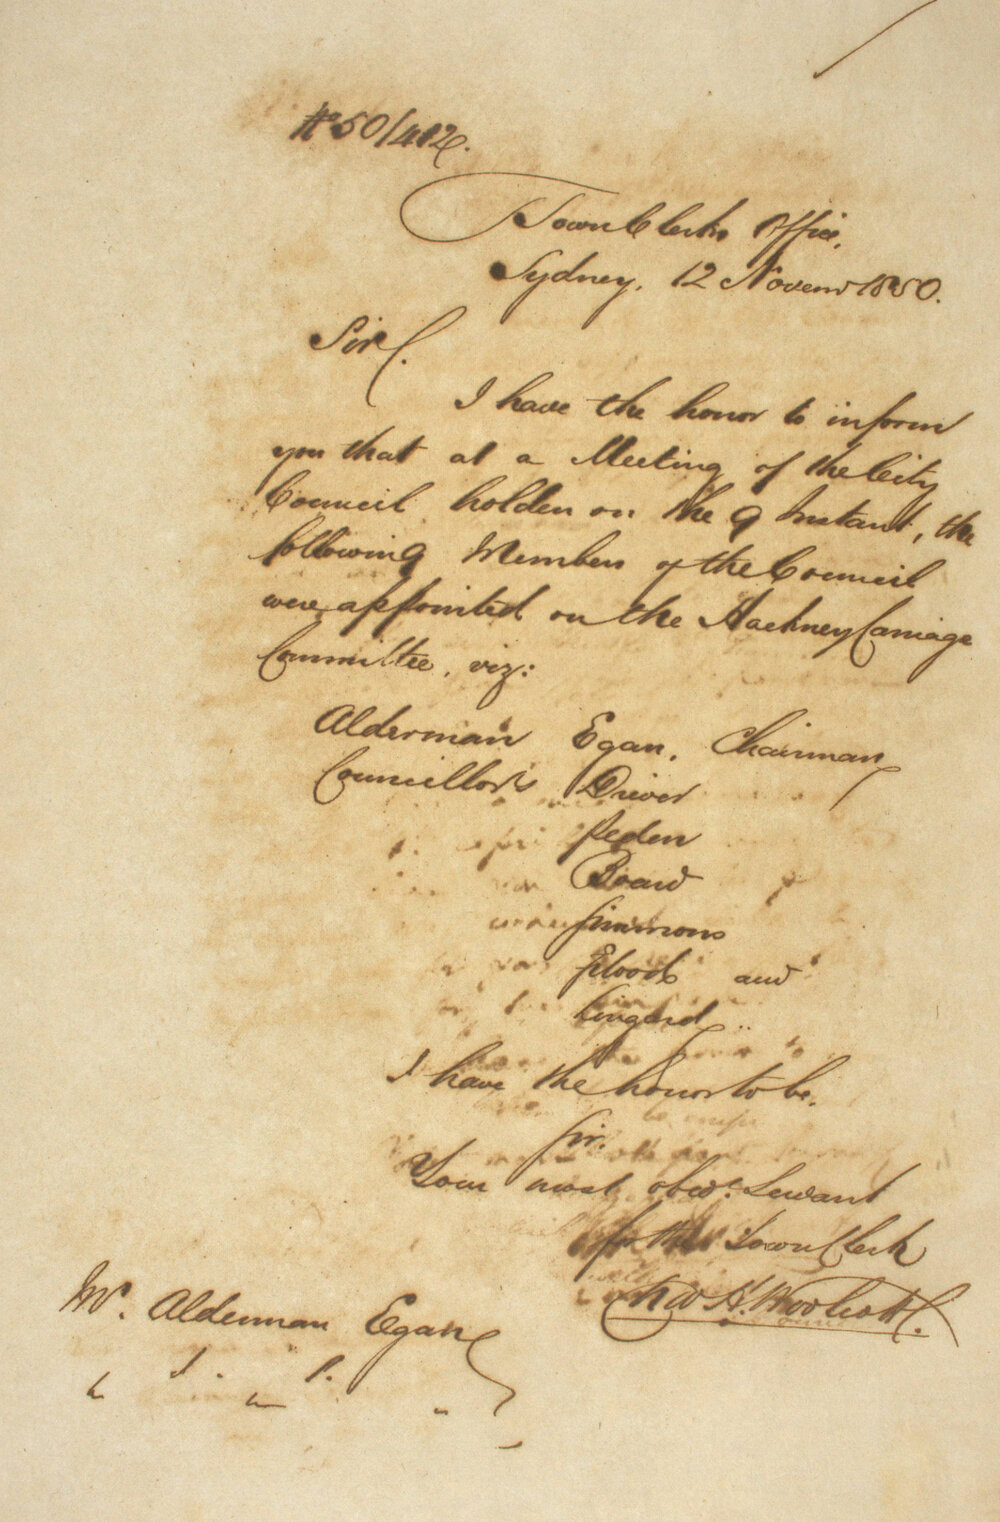 No 50/412.
Town Clerks Office,
Sydney, 12 Novemr 1850.
Sir,
I have the honor to inform
you that at a Meeting of the City
Council holden on the 9 Instant, the
following Members of the Council
were appointed on the Hackney Carriage
Committee, viz:
Alderman Egan, Chairman
Councillors Driver
Peden
Board
Simmons
Flood and
Lingard
I have the honor to be.
Sir.
Your most obedt. Servant
for the Town Clerk
Chas H. Woolcott
Mr. Alderman Egan